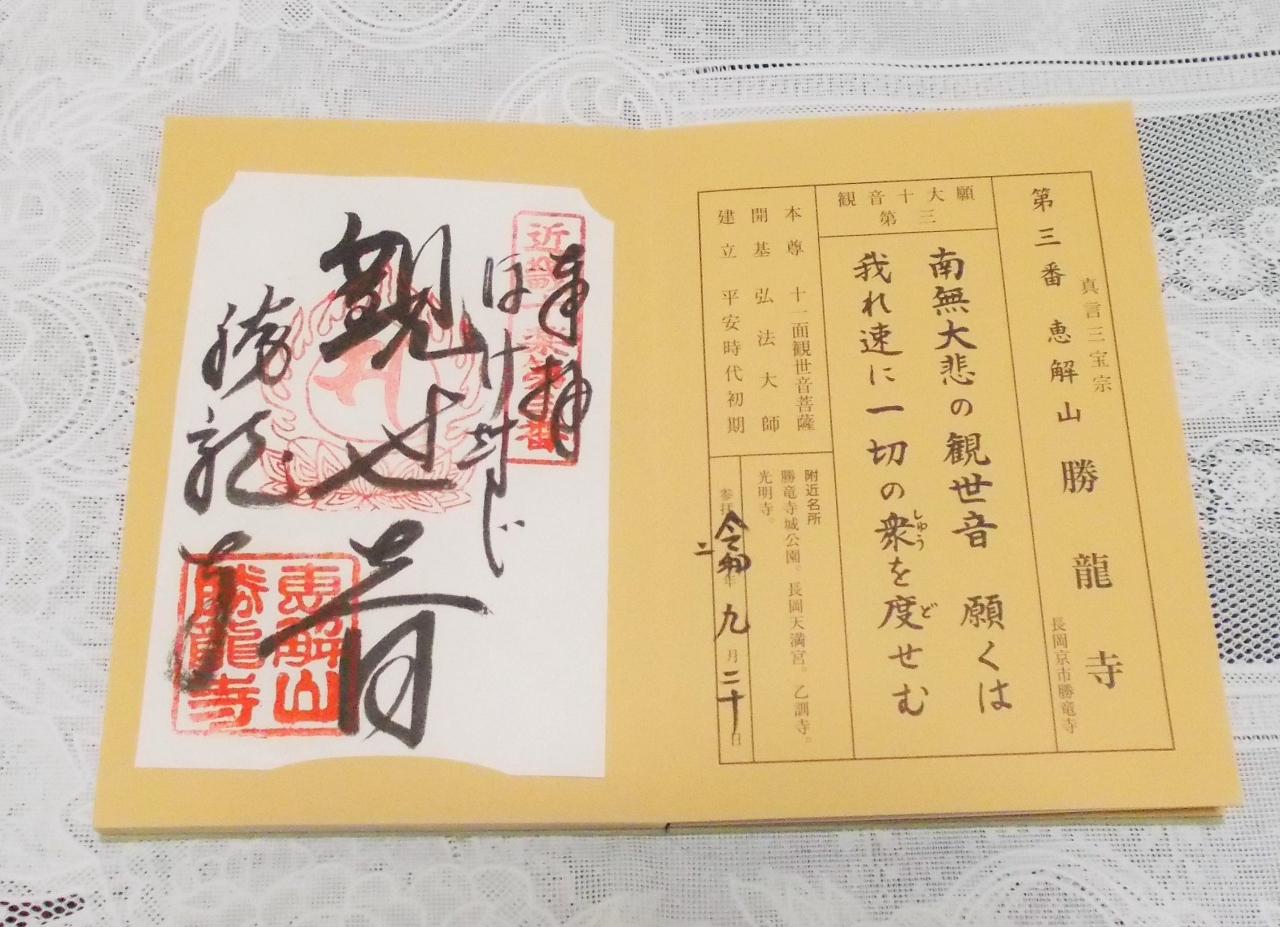 真言三宝宗
第三番 恵解山 勝龍寺
長岡京市勝竜寺
観音十大願
第三
南無大悲の観世音 願くは
我れ速に一切の衆を度せむ
しゅう
ど
本尊 十一面観世音菩薩
開基 弘法大師
建立 平安時代初期
附近名所
勝竜寺城公園。長岡天満宮。乙訓寺。
光明寺。
令和二年九月二十日
奉拝
観世音
勝龍寺
恵解山
勝龍寺